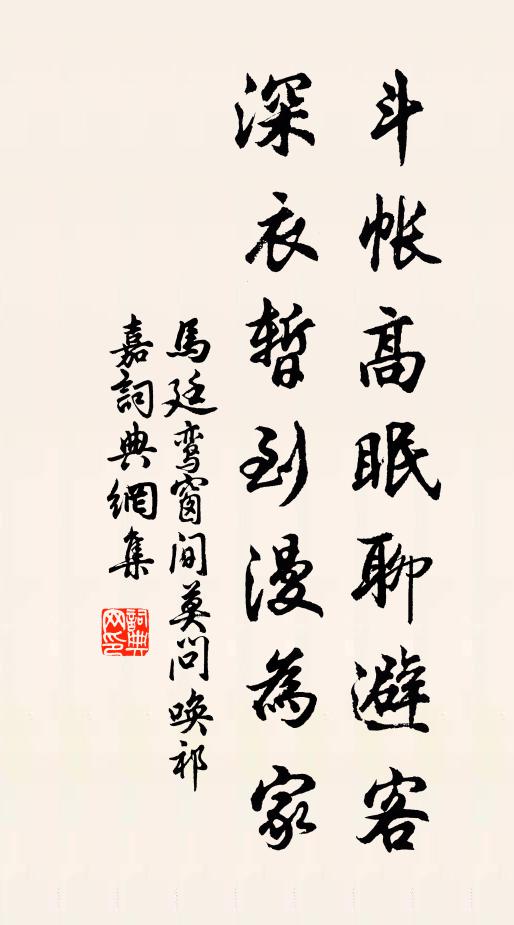 斗帐高眠聊避客
深衣暂到漫为家
馬廷鸾窗间莫问唤祁
嘉詞典網集
詞典网印